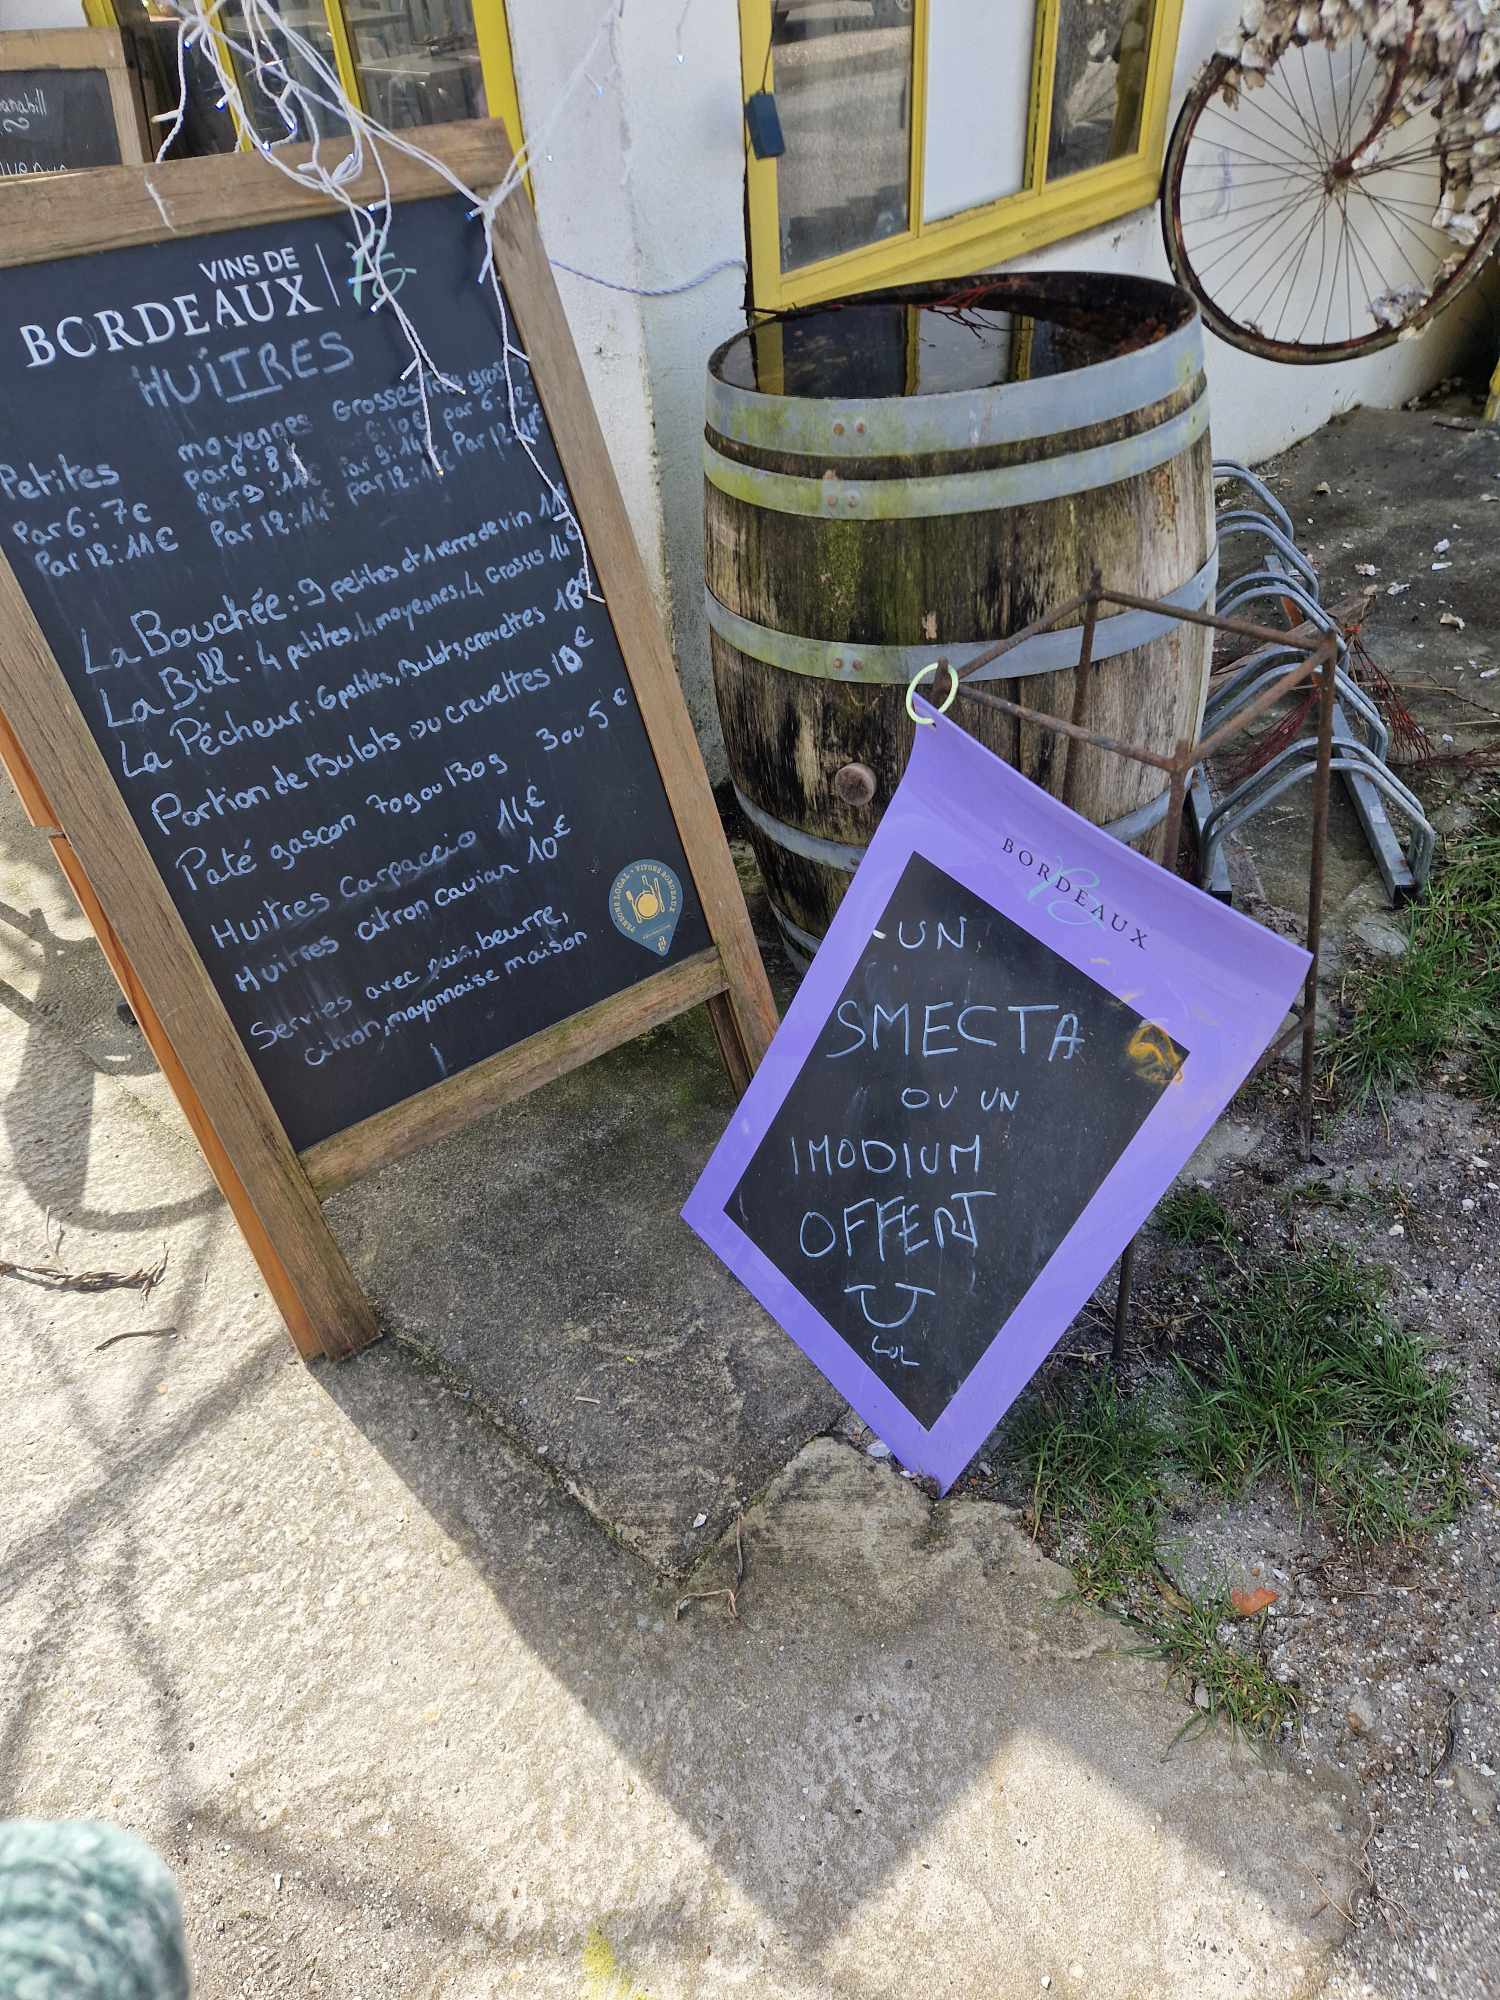 VINS DE
BORDEAUX
HUITRES
Petites
Par 6 : 7€
Par 12 : 11€
moyennes
par 6 : 8
Par 9 : 11€
Par 12 : 14€
Grosses
par 12 :
par 6 :
Par 12
La Bouchée : 9 petites et 1 verre de vin 11
La Bill : 4 petites, 4 moyennes, 4 Grosses 14€
La Pêcheur : 6 petites, Bulots, crevettes 18€
Portion de Bulots ou crevettes 10€
Paté gascon 70g ou 130g 3 ou 5€
Huitres Carpaccio 14€
Huitres citron caviar 10€
Servies avec pain, beurre,
citron, mayonnaise maison
BORDEAUX
UN
SMECTA
OU UN
IMODIUM
OFFERT
LOL